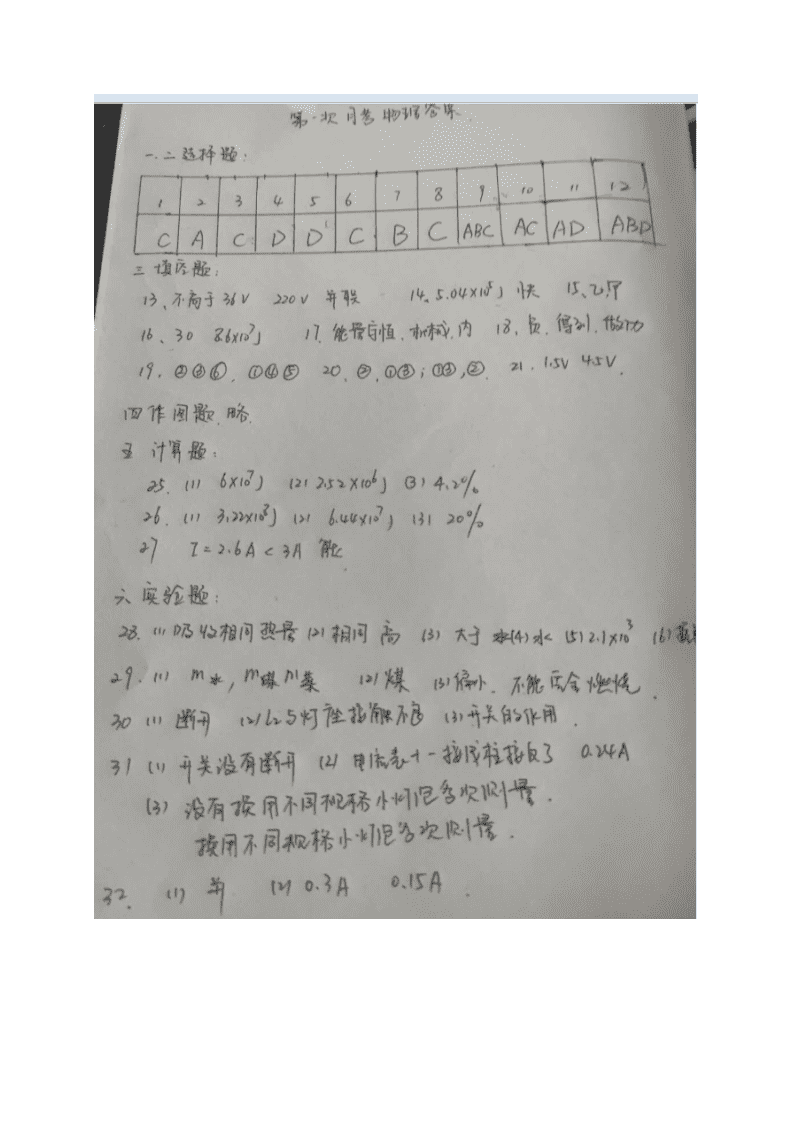 第一次月考物理答案
一.二选择题:
1 2 3 4 5 6 7 8 9 10 11 12
C A C D D C B C ABC AC AD ABD
三 填空题:
13、不高于36V 220V 并联 14、5.04×10⁵J 快 15、乙甲
16、30 8.6×10⁷J 17. 能量守恒.机械.内 18、负.得到.做功
19. ⑥. ①④⑤ 20. ②.①③; ①③,②. 21. 1.5V 4.5V.
四作图题.略.
五 计算题:
25. (1) 6×10⁷J (2) 2.52×10⁶J (3) 4.2%
26. (1) 3.22×10⁸J (2) 6.44×10⁷J (3) 20%
27 I=2.6A<3A 能
六 实验题:
28. (1) 吸收相同热量 (2) 相同 高 (3) 大于 (4) 水 (5) 2.1×10³ (6)
29. (1) m水, m煤 m菜 (2) 煤 (3) 偏小. 不能完全燃烧.
30 (1) 断开 (2) L2与灯座接触不良 (3) 开关的作用.
31 (1) 开关没有断开 (2) 电流表+-接线柱接反了 0.24A
(3) 没有换用不同规格小灯泡多次测量.
换用不同规格小灯泡多次测量.
32. (1) 并 (2) 0.3A 0.15A.